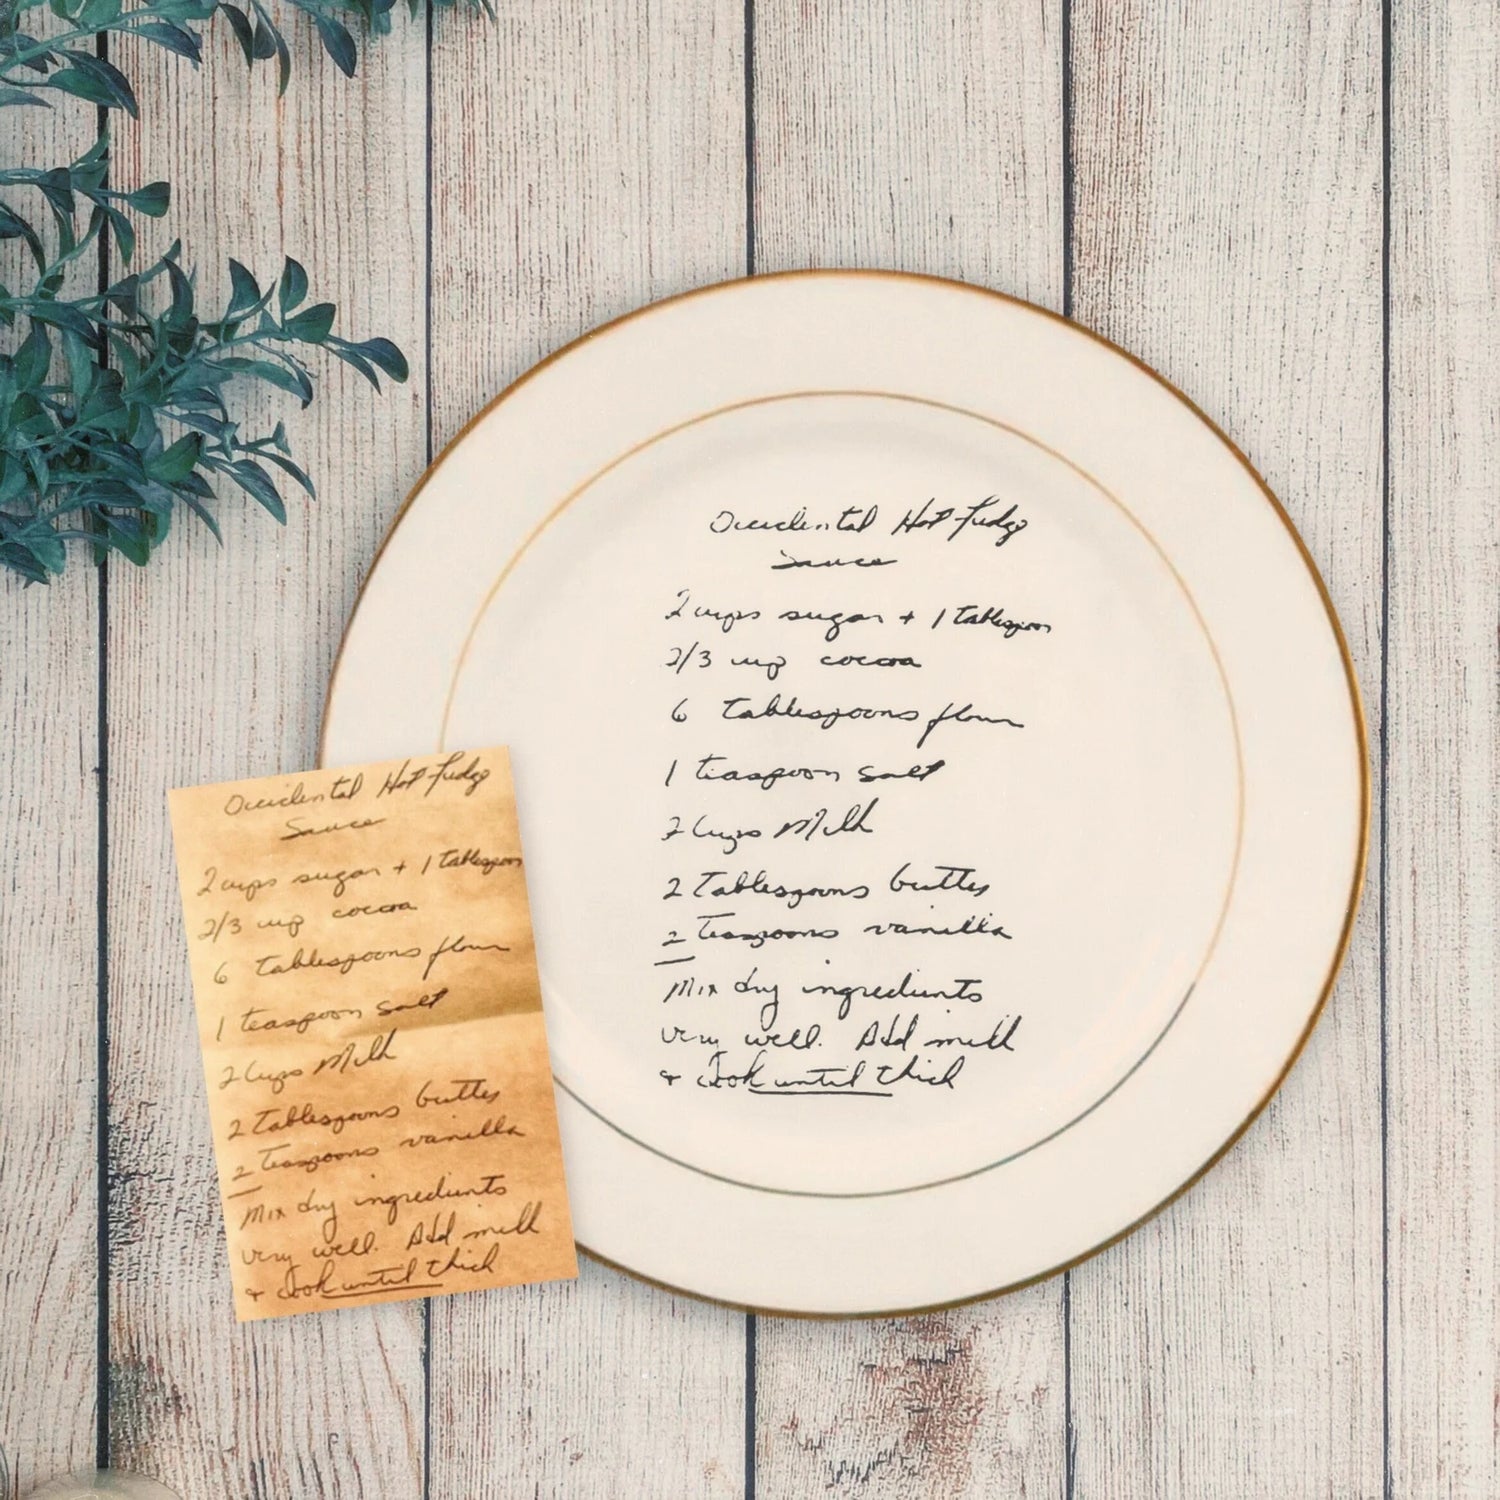 Occidental Hot Fudge
Sauce
2 cups sugar + 1 Tablespoon
2/3 cup cocoa
6 tablespoons flour
1 teaspoon salt
2 Cups Milk
2 Tablespoons butter
2 Teaspoons vanilla
Mix dry ingredients
very well. Add milk
+ Cook until thick
Occidental Hot Fudge
Sauce
2 cups sugar + 1 Tablespoon
2/3 cup cocoa
6 tablespoons flour
1 teaspoon salt
2 Cups Milk
2 Tablespoons butter
2 Teaspoons vanilla
Mix dry ingredients
very well. Add milk
+ Cook until thick